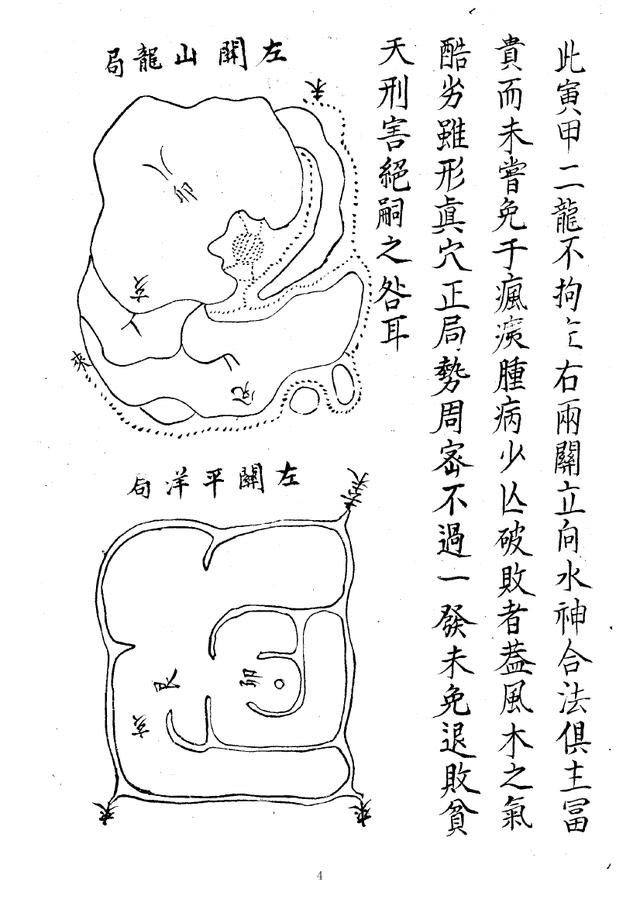 此寅甲二龍不拘左右兩關立向水神合法俱主冨
貴而未嘗免于瘋痍腫病少亾破敗者葢風木之氣
酷劣雖形眞穴正局勢周宻不過一發未免退敗貧
天刑害絕嗣之咎耳
左關山龍局
未
卯
亥
來
左關平洋局
艮
卯
亥
來
來
4